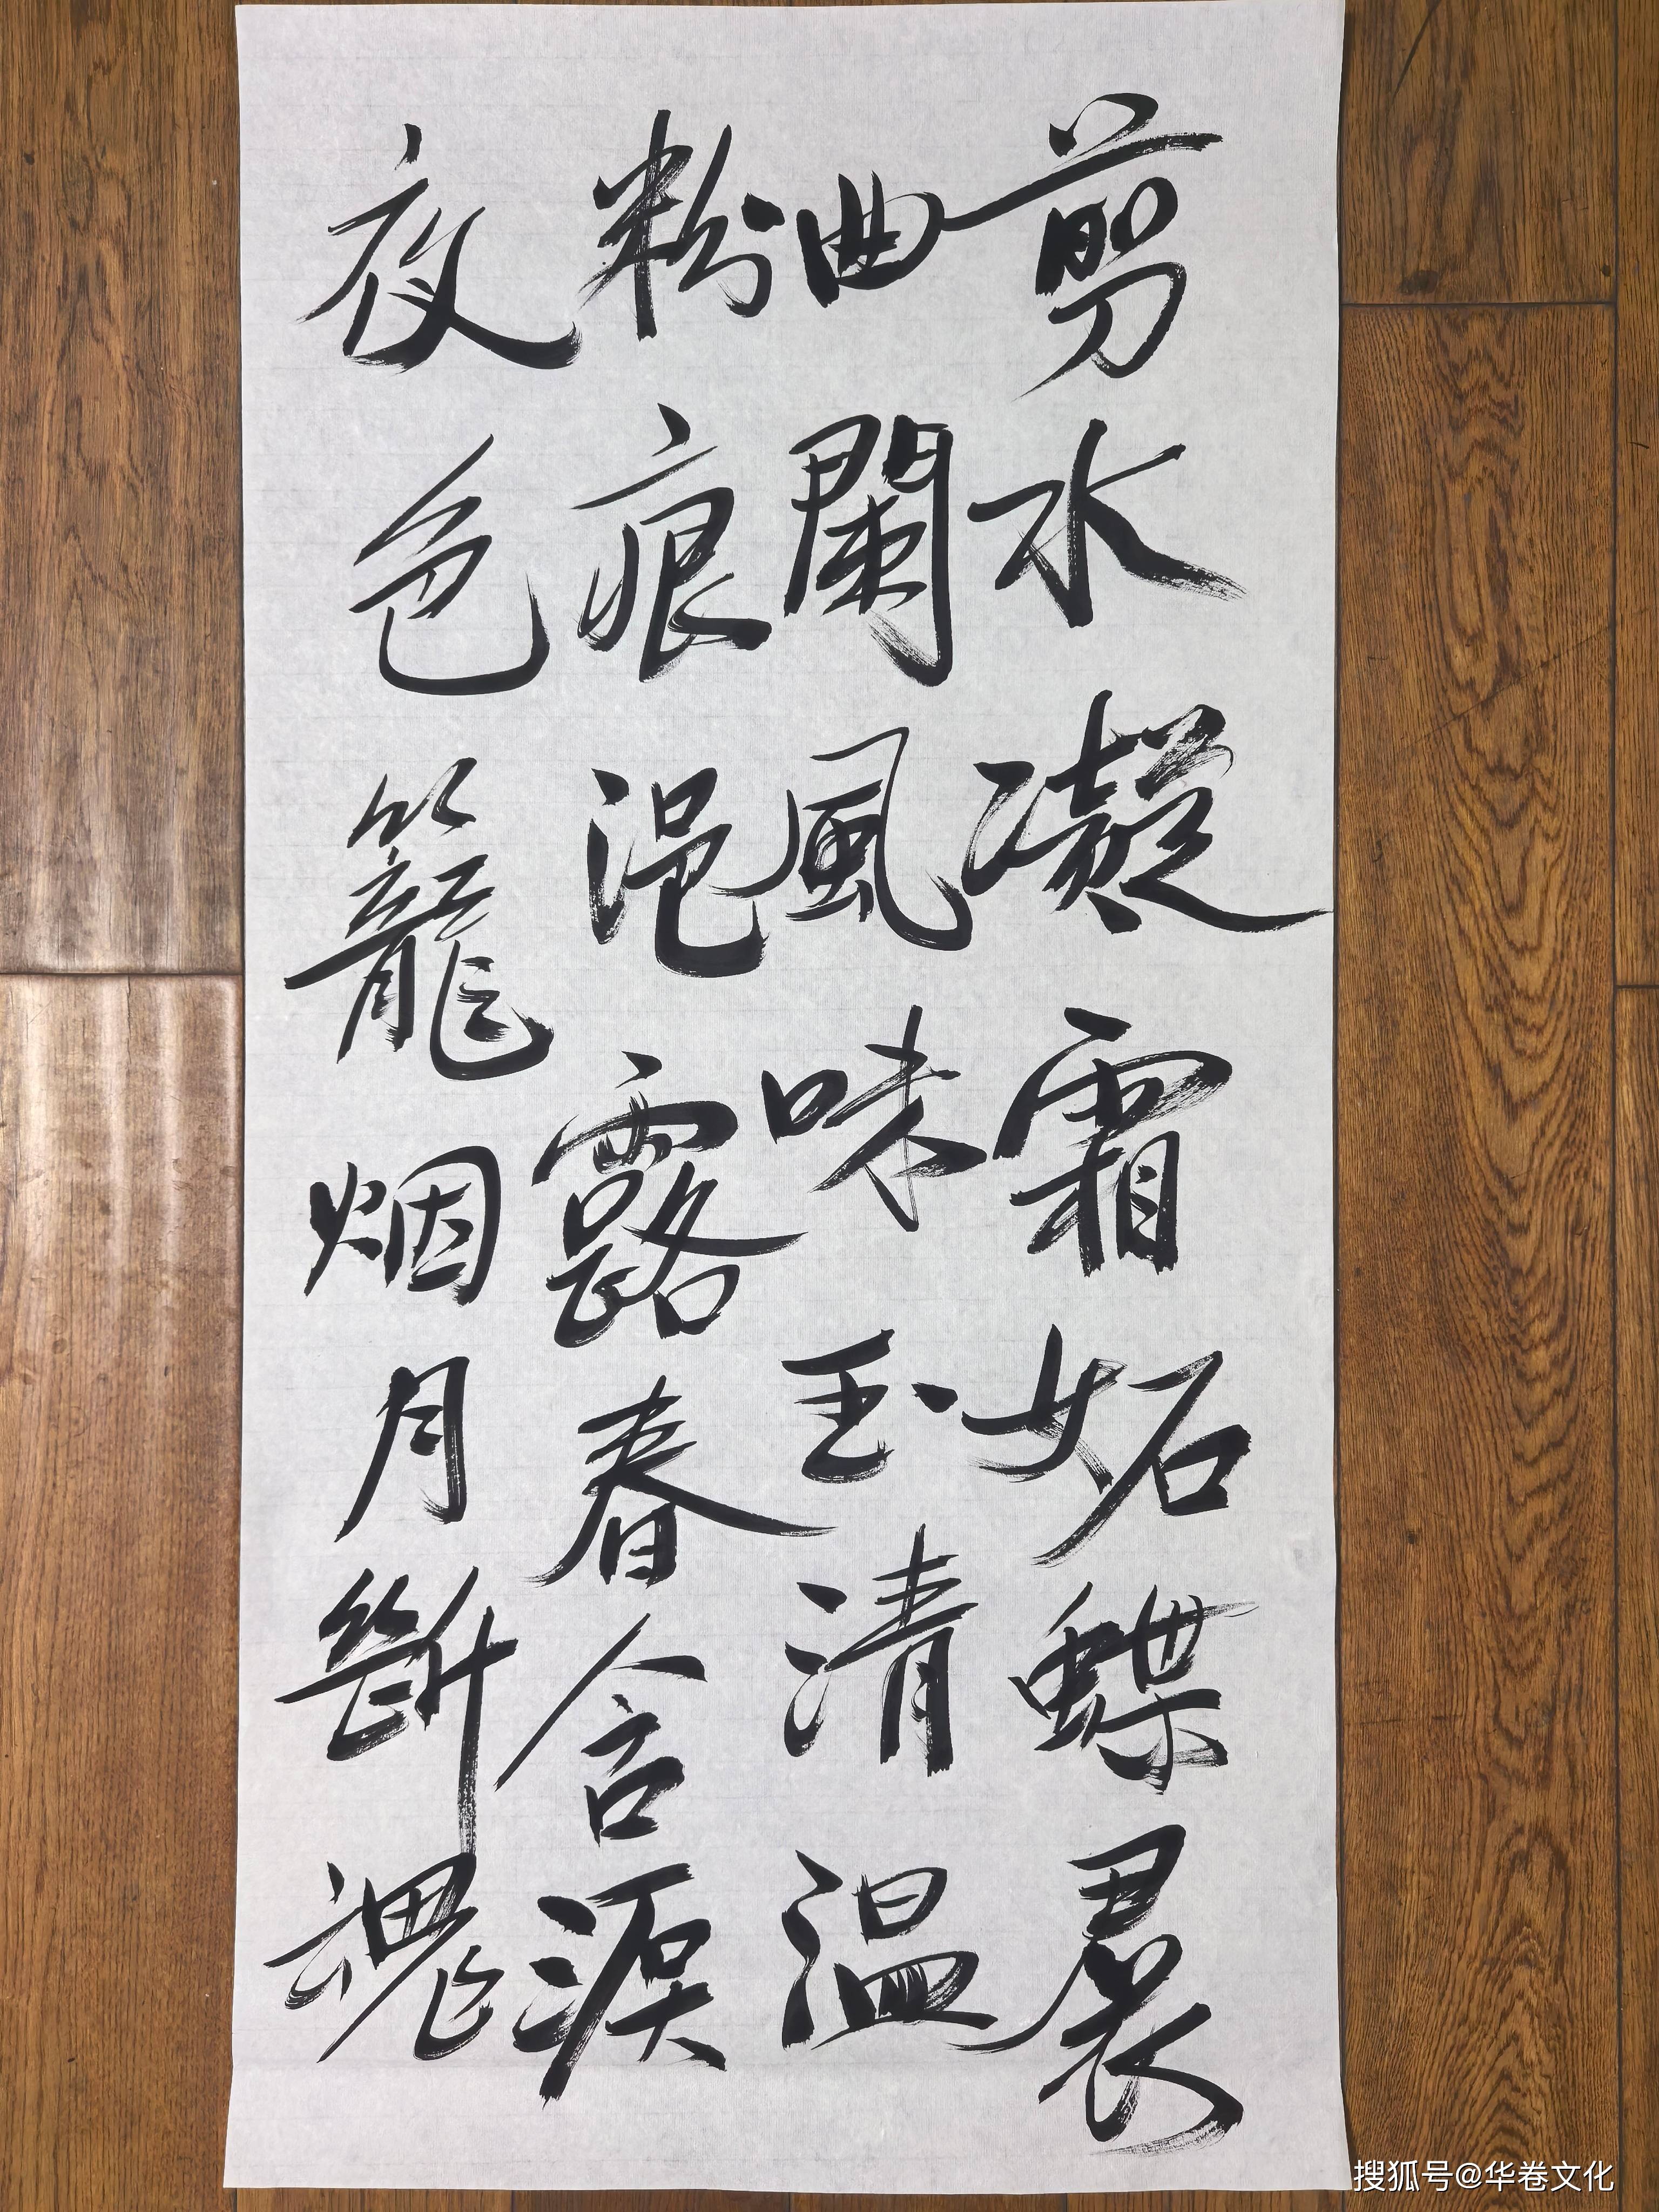 剪水凝霜妬蝶裙
曲闌風味玉清温
粉痕浥露春含淚
夜色籠烟月斷魂
搜狐号@华卷文化